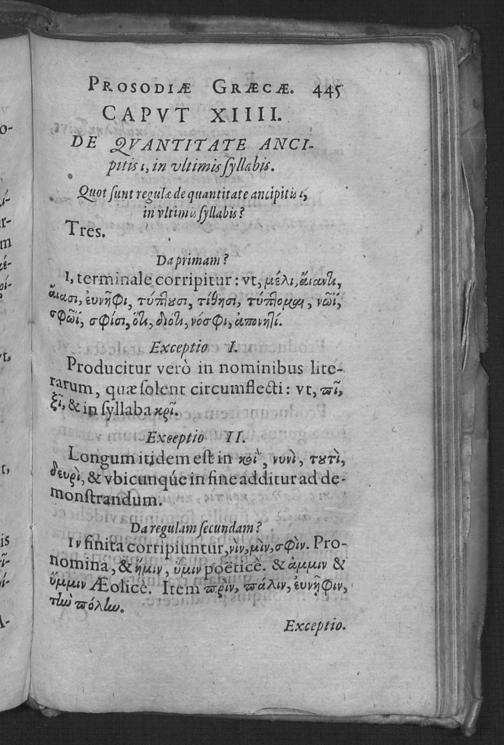 PROSODIÆ GRÆCÆ. 445
CAPVT XIIII.
DE QVANTITATE ANCI-
pitis ι, in vltimis syllabis.
Quot sunt regulæ de quantitate ancipitis ι,
in vltimis syllabis?
Tres.
Da primam?
Ι, terminale corripitur: vt, μέλι, αἴαντι,
αἴασι, εὐνῆφι, τύπτουσι, τίθησι, τύπτομαι, νῶϊ,
σφῶϊ, σφίσι, ὅτι, διότι, νόσφι, ἀπονητί.
Exceptio I.
Producitur verò in nominibus lite-
rarum, quæ solent circumflecti: vt, πῖ,
ξῖ, & in syllaba κρῖ.
Exceptio II.
Longum itidem est in κρῖ, νυνὶ, τουτὶ,
δευρὶ, & vbicunque in fine additur ad de-
monstrandum.
Da regulam secundam?
Ιν finita corripiuntur, νὶν, μὶν, σφὶν. Pro-
nomina, & ἥμιν, ὕμιν poëticè. & ἄμμιν &
ὔμμιν Æolicè. Item πρὶν, πάλιν, εὐνῆφιν,
τὴν πόλιν.
Exceptio.
o-
r-
m
t,
is